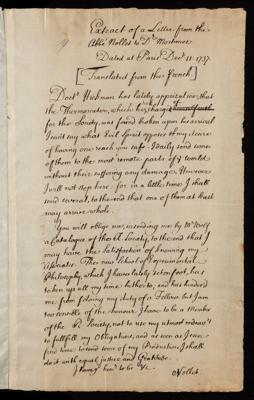 Extract of a Letter from the
Abbé Nollet to Dr Mortimer
Dated at Paris Decr 11. 1737.
[Translated from the French]
Doctr Hickman has lately apprized me, that
the Thermometer, which he charged himself with
for the Society, was found broken upon his arrival
I can't say what Evil Spirit opposes the desire
of having one reach you safe. I daily send some
of them to the most remote parts of ye world
without their suffering any damage. However
I will not stop here, for in a little time I shall
send several, to the end that one of them at least
may arrive whole.
You will oblige me, in sending me by Mr
a Catalogue of the Society, to the end that I
may have the Satisfaction of knowing my
The new School of Experimental
Philosophy, which I have lately set on foot, has
taken up all my time hitherto, and has hinder'd
me from my duty of a Fellow. but I am
too sensible of the honour I have to be a Member
of the R. Society, not to use my utmost endeavrs
to fullfill my Obligations, and as soon as I can
find time to send some of my Productions, I shall
do it with equal justice and Gratitude.
I have ye honr to be &c.
Nollet